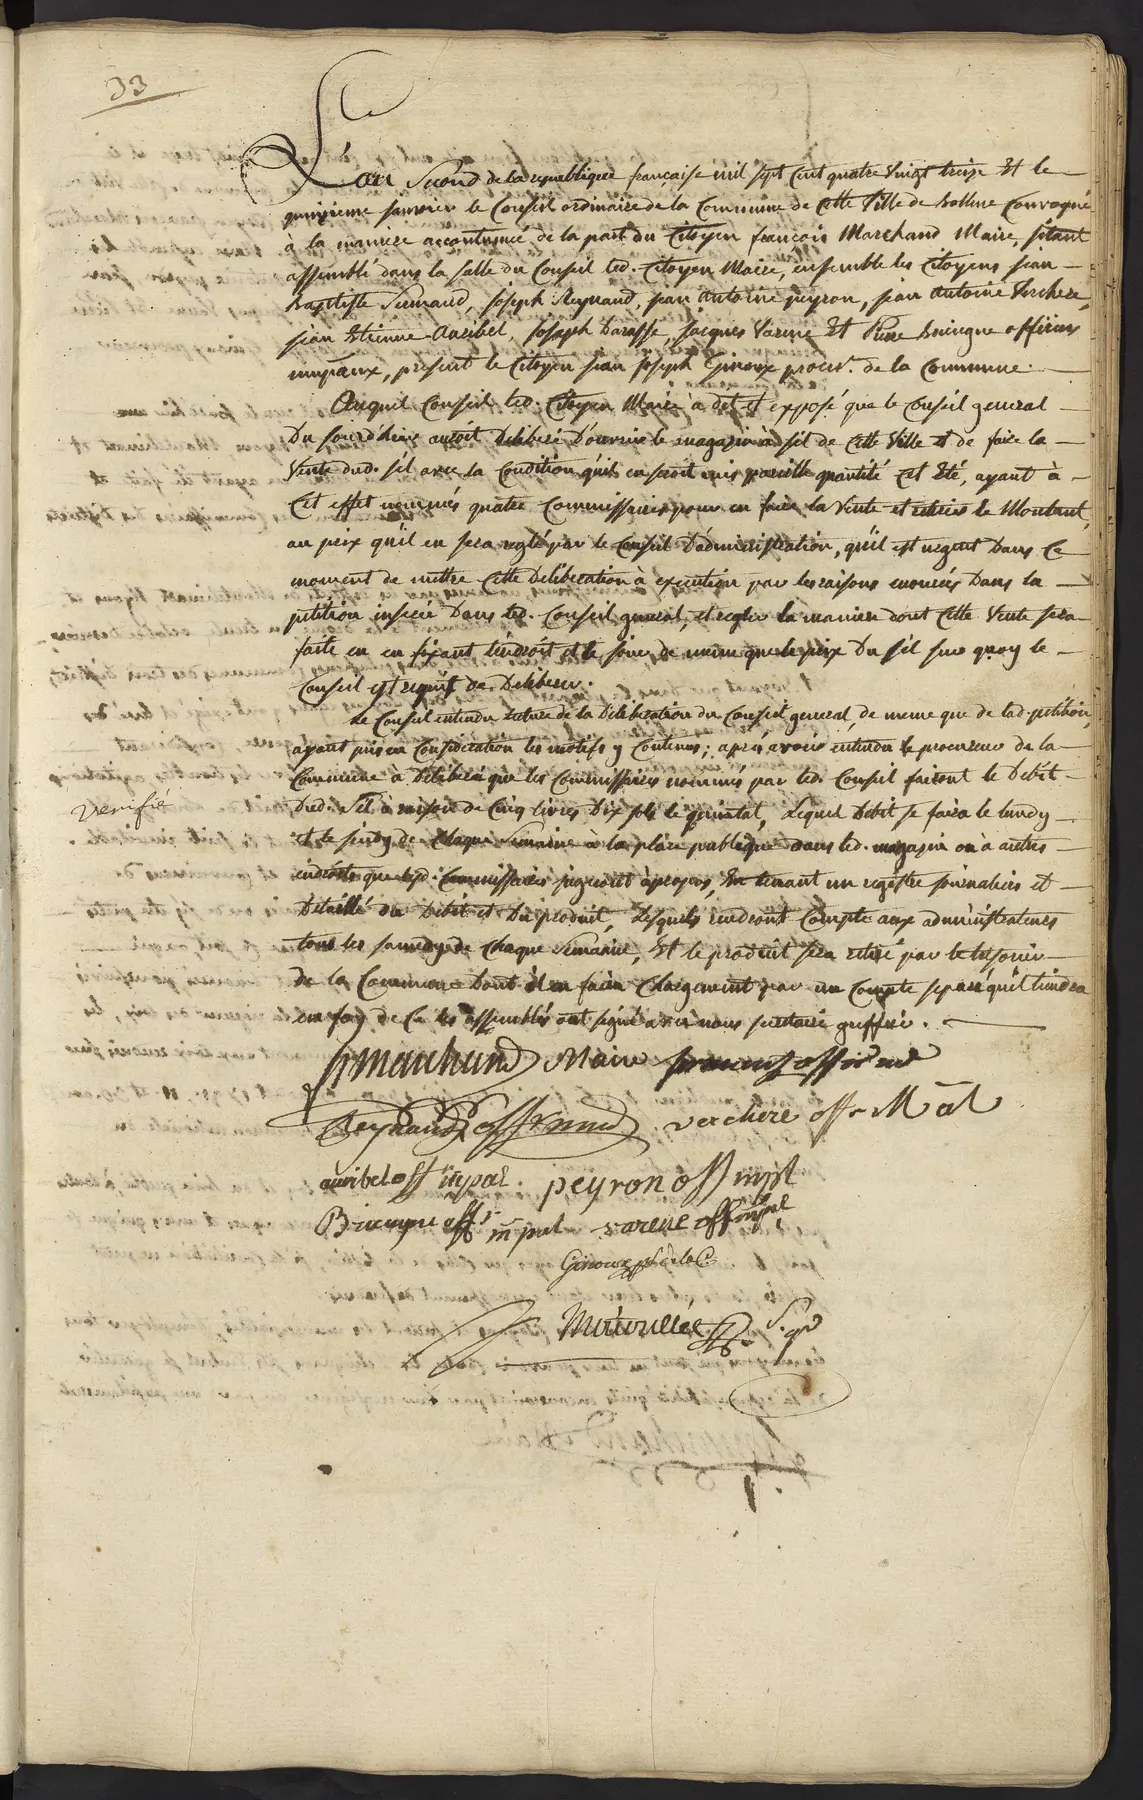 33
L'an Second de la republique française mil sept cent quatre vingt treize Et le
quinzieme janvier le Conseil ordinaire de la Commune de Cette Ville de Bollene Convoqué
à la maniere accoutumée de la part du Citoyen françois Marchand Maire, s'étant
assemblé dans la salle du Conseil led. Citoyen Maire, ensemble les Citoyens jean
Baptiste joseph Reynaud, jean Antoine peyron, jean Antoine Verchere,
jean Etienne Auribel, joseph Darasse, jacques Varene Et Pierre officiers
mupaux, présent le Citoyen jean joseph Giroux procur. de la Commune.
Auquel Conseil led. Citoyen Maire à dit et exposé que le Conseil general
Du jourd'hier auroit Délibéré D'ouvrir le magazin à sel de Cette Ville et de faire la
Vente dud. sel avec la Condition qu'il en seroit mis pareille quantité Cet Eté, ayant à
Cet effet nommés quatre Commissaires pour en faire la Vente et retirer le Montant,
au prix qu'il en sera reglé par le Conseil D'administration, qu'il est urgent Dans Ce
moment de mettre Cette Deliberation à execution par les raisons enoncées Dans la
petition inserée Dans led. Conseil general, et regler la maniere dont Cette Vente sera
faite en en fixant l'endroit et le jour de meme que le prix Du sel sur quoy le
Conseil est requis de Deliberer.
Le Conseil entendu Lecture de la Déliberation du Conseil general, de meme que de lad. petition
ayant pris en Consideration les motifs y Contenus; après avoir entendu le procureur de la
Commune à Délibéré que les Commissaires nommés par led. Conseil fairont le Debit
Verifié
Dud. sel à raison de Cinq livres Dix sols le quintal, Lequel Debit se faira le lundy
et le jeudy de Chaque Semaine à la place publique dans led. magazin ou à autres
endroits que lesd. Commissaires jugeront àpropos, En tenant un registre journalier et
Détaillé du Debit et Du produit, Lesquels rendront Compte aux administrateurs
tous les samedy de Chaque Semaine, Et le produit sera retiré par le tresorier
de la Commune Dont il en faira Chargement par un Compte separé qu'il tiendra
en foy de Ce les assemblés ont signé avec nous secretaire greffier.
Marchand Maire
Reynaud off verchere off M al
auribel off mpal. peyron off mpl
off mpal varene off mpal
Giroux pr de la C